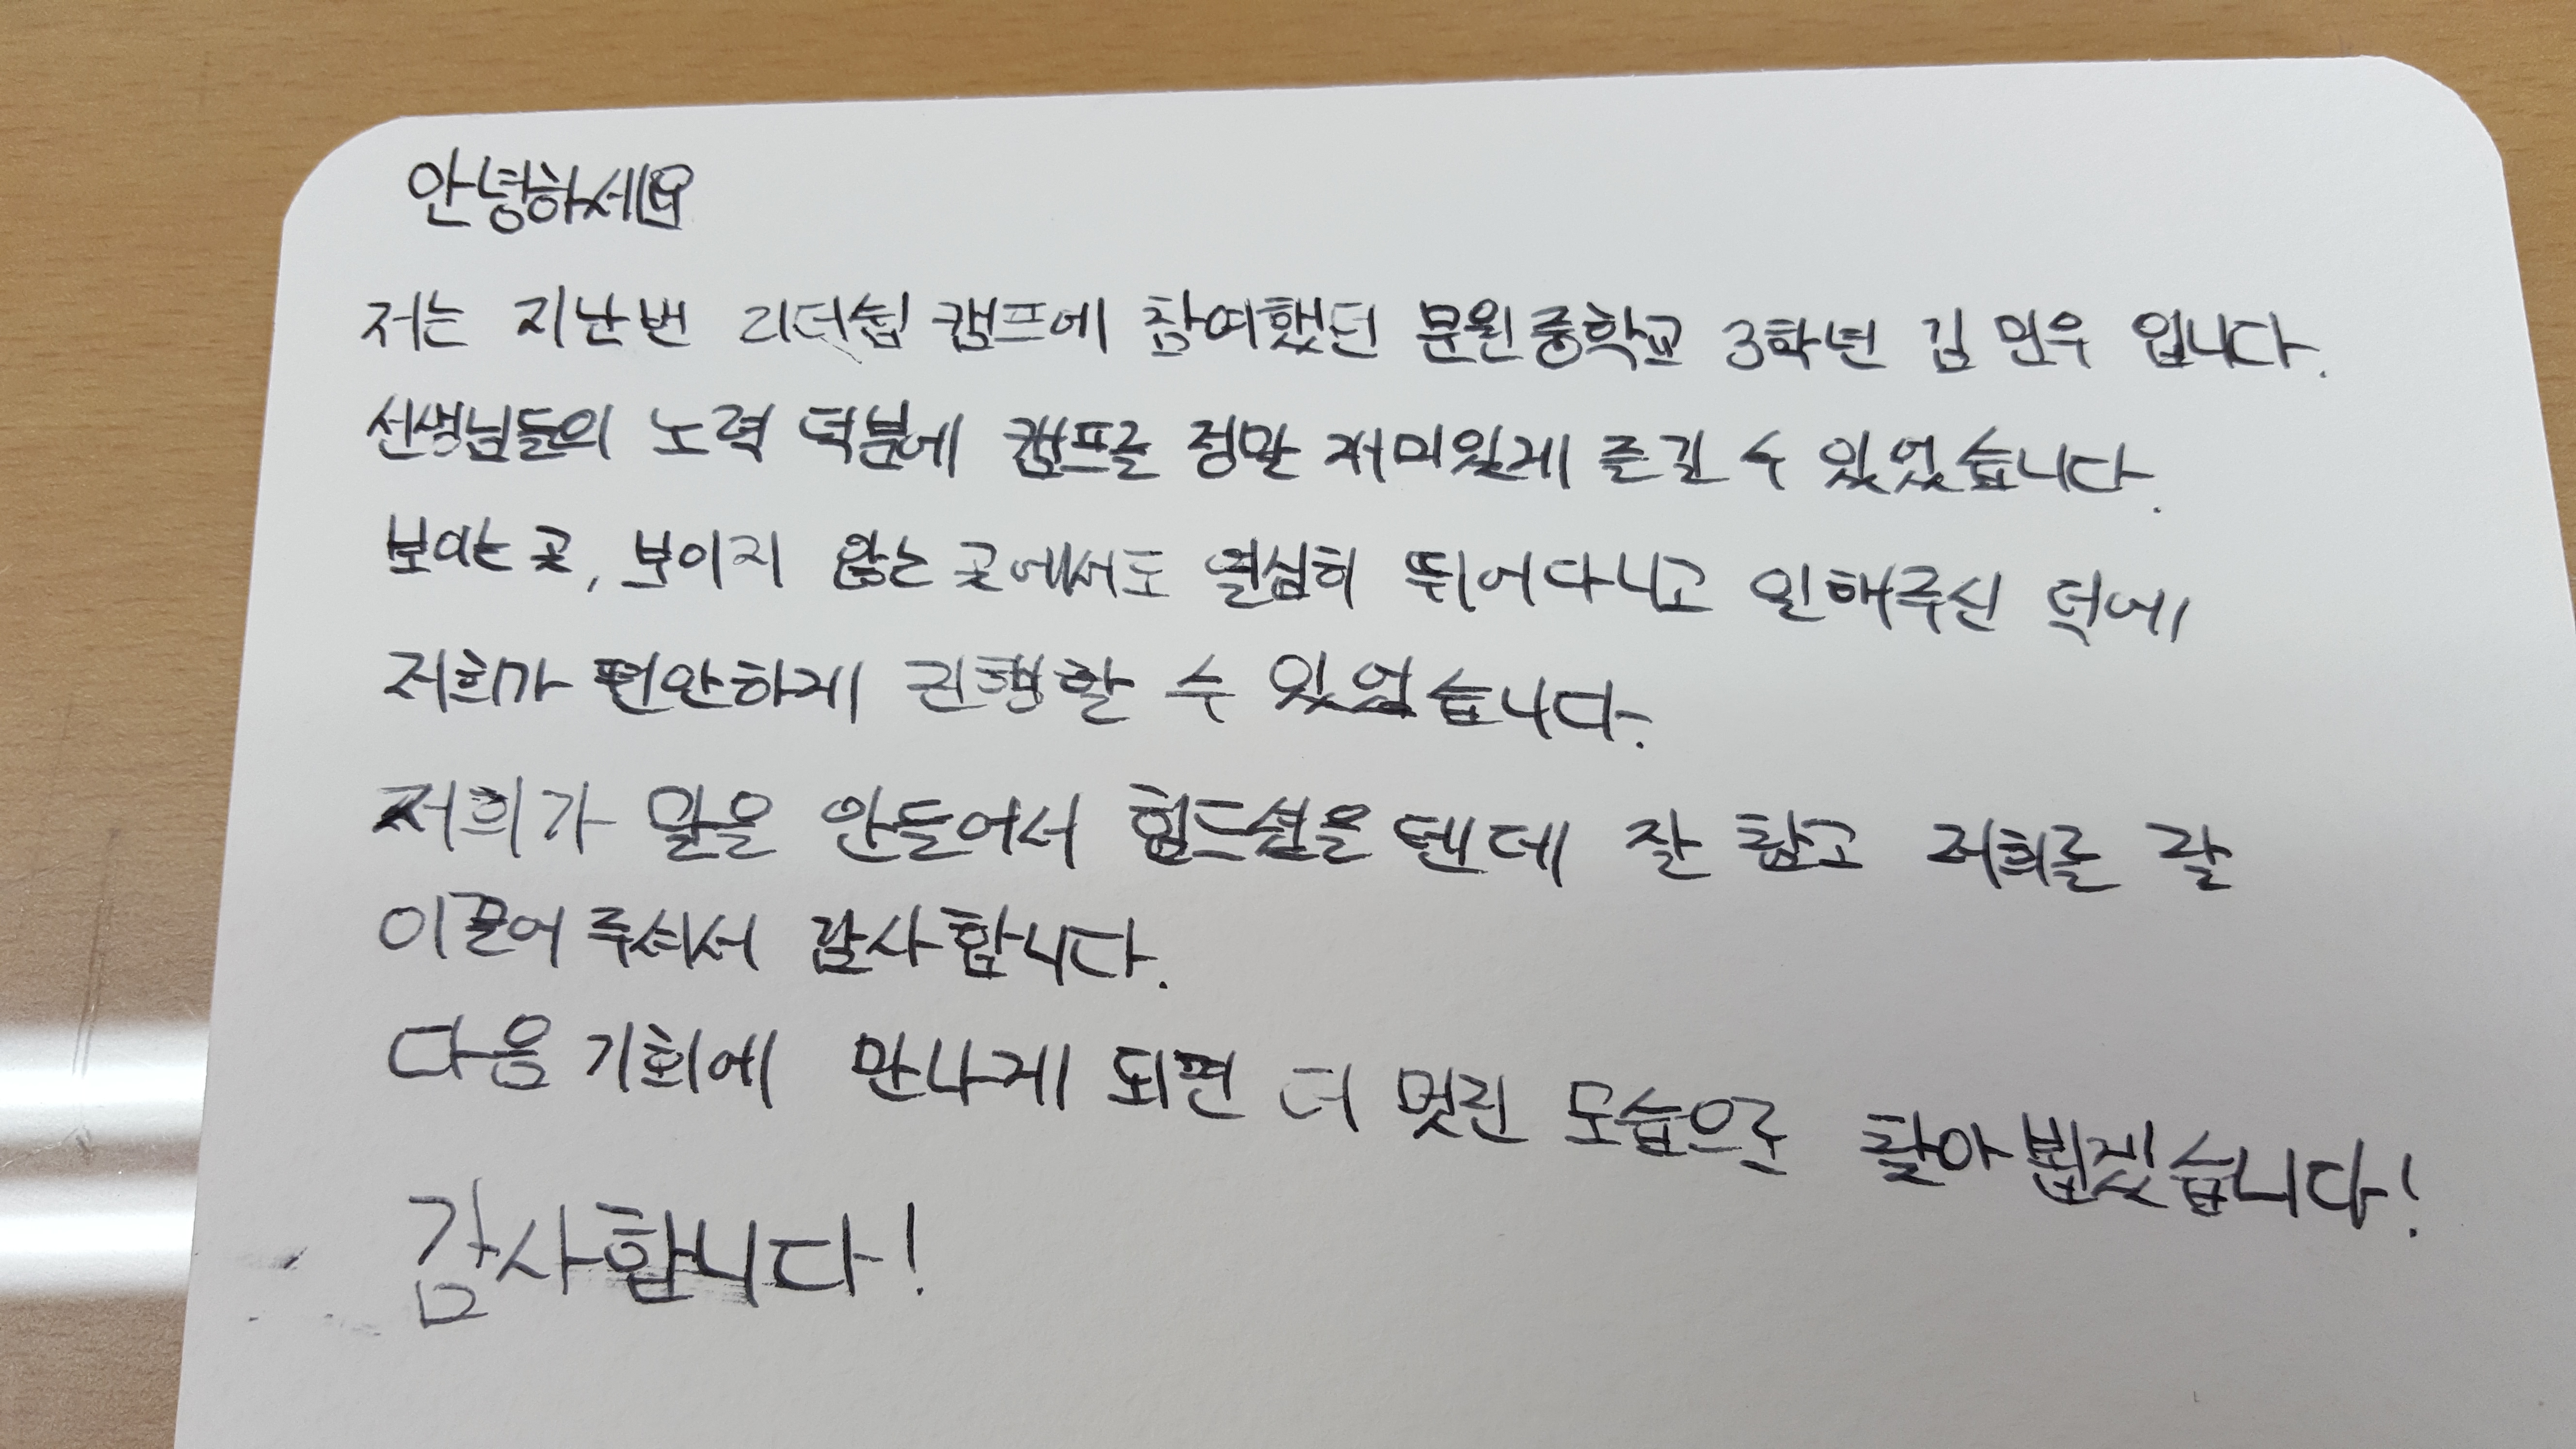 안녕하세요
저는 지난번 리더쉽 캠프에 참여했던 문원중학교 3학년 김민우 입니다.
선생님들의 노력 덕분에 캠프를 정말 재미있게 즐길 수 있었습니다.
보이는 곳, 보이지 않는 곳에서도 열심히 뛰어다니고 일해주신 덕에
저희가 편안하게 진행할 수 있었습니다.
저희가 말을 안들어서 힘드셨을텐데 잘 참고 저희를 잘
이끌어 주셔서 감사합니다.
다음 기회에 만나게 되면 더 멋진 모습으로 찾아뵙겠습니다!
감사합니다!